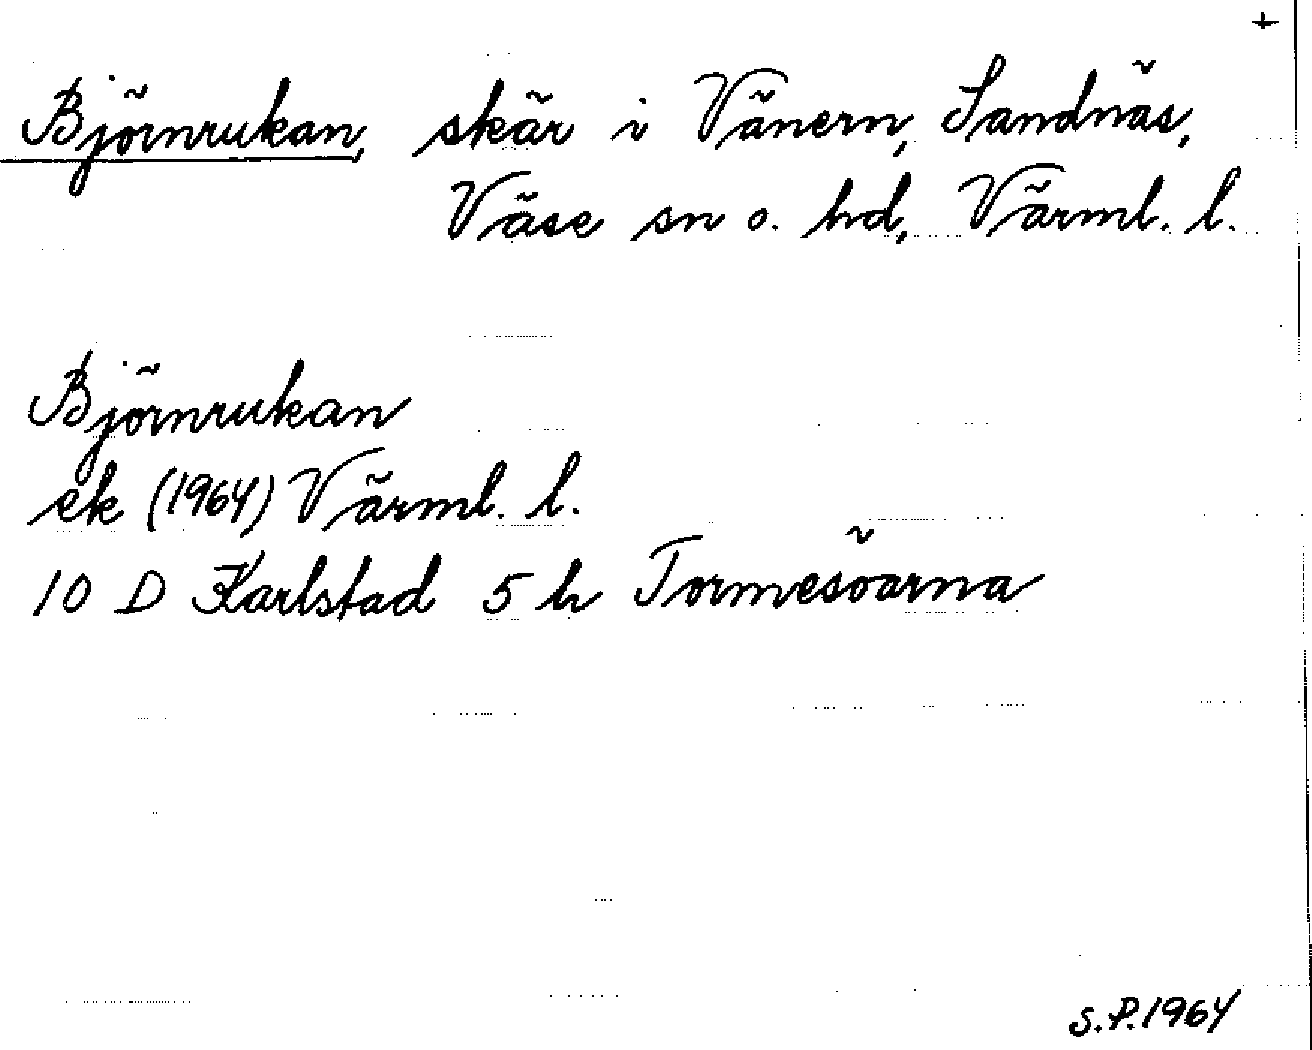 +
Björnrukan, skär i Vänern, Sandnäs,
Väse sn o. hd, Värml. l.
Björnrukan
ek (1964) Värml. l.
10 D Karlstad 5 h Tormesöarna
S.P. 1964